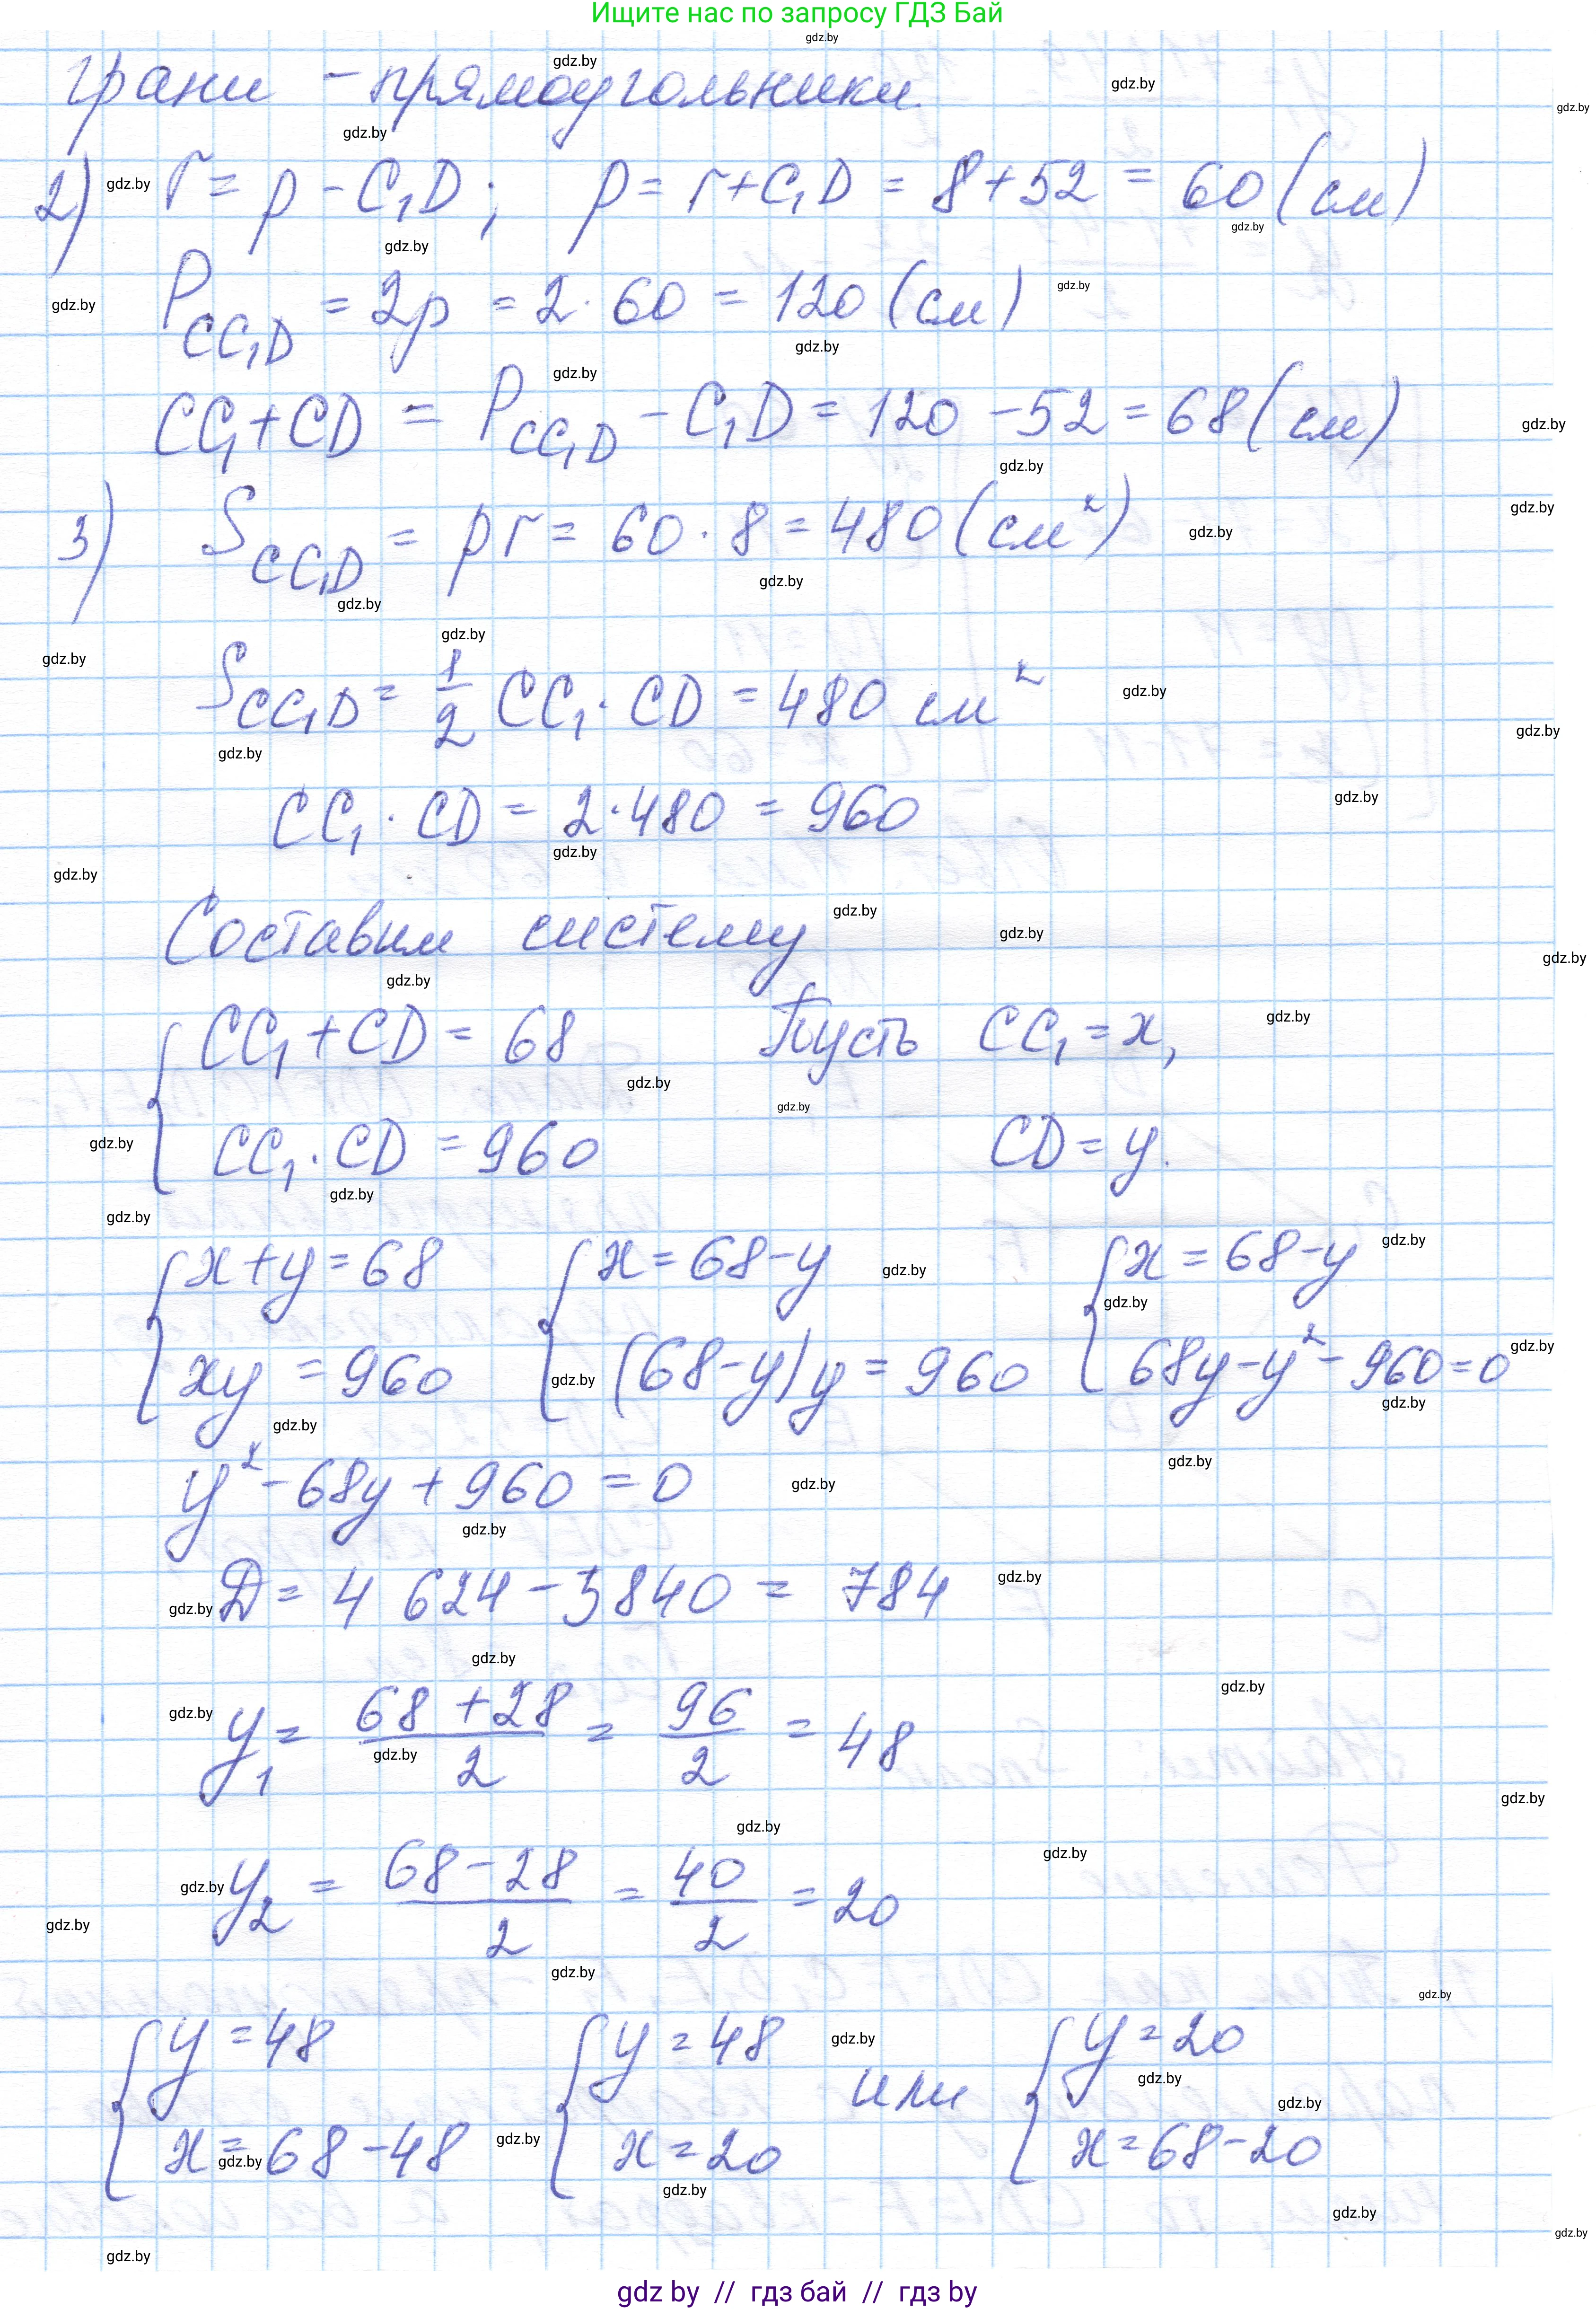 Ищите нас по запросу ГДЗ Бай
грани - прямоугольники.
2) r = p - C₁D; p = r + C₁D = 8 + 52 = 60 (см)
P_CC₁D = 2p = 2 · 60 = 120 (см)
CC₁ + CD = P_CC₁D - C₁D = 120 - 52 = 68 (см)
3) S_CC₁D = pr = 60 · 8 = 480 (см²)
S_CC₁D = 1/2 CC₁ · CD = 480 см²
CC₁ · CD = 2 · 480 = 960
Составим систему
{ CC₁ + CD = 68 Пусть CC₁ = x,
CC₁ · CD = 960 CD = y.
{ x + y = 68 { x = 68 - y { x = 68 - y
xy = 960 (68 - y)y = 960 68y - y² - 960 = 0
y² - 68y + 960 = 0
D = 4 624 - 3840 = 784
y₁ = (68 + 28)/2 = 96/2 = 48
y₂ = (68 - 28)/2 = 40/2 = 20
{ y = 48 { y = 48 или { y = 20
x = 68 - 48 x = 20 x = 68 - 20
gdz.by
gdz by // гдз бай // гдз by